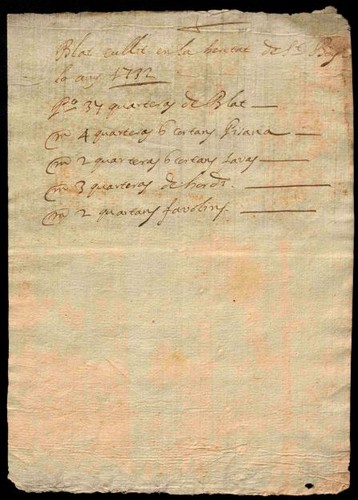 Blat cullit en la heretat de St.
lo any 1712
Po 37 quarteras de Blat
m 4 quarteras 6 cortans
m 2 quarteras 6 cortans favas
m 3 quarteras de hordi
m 2 quartans favolins